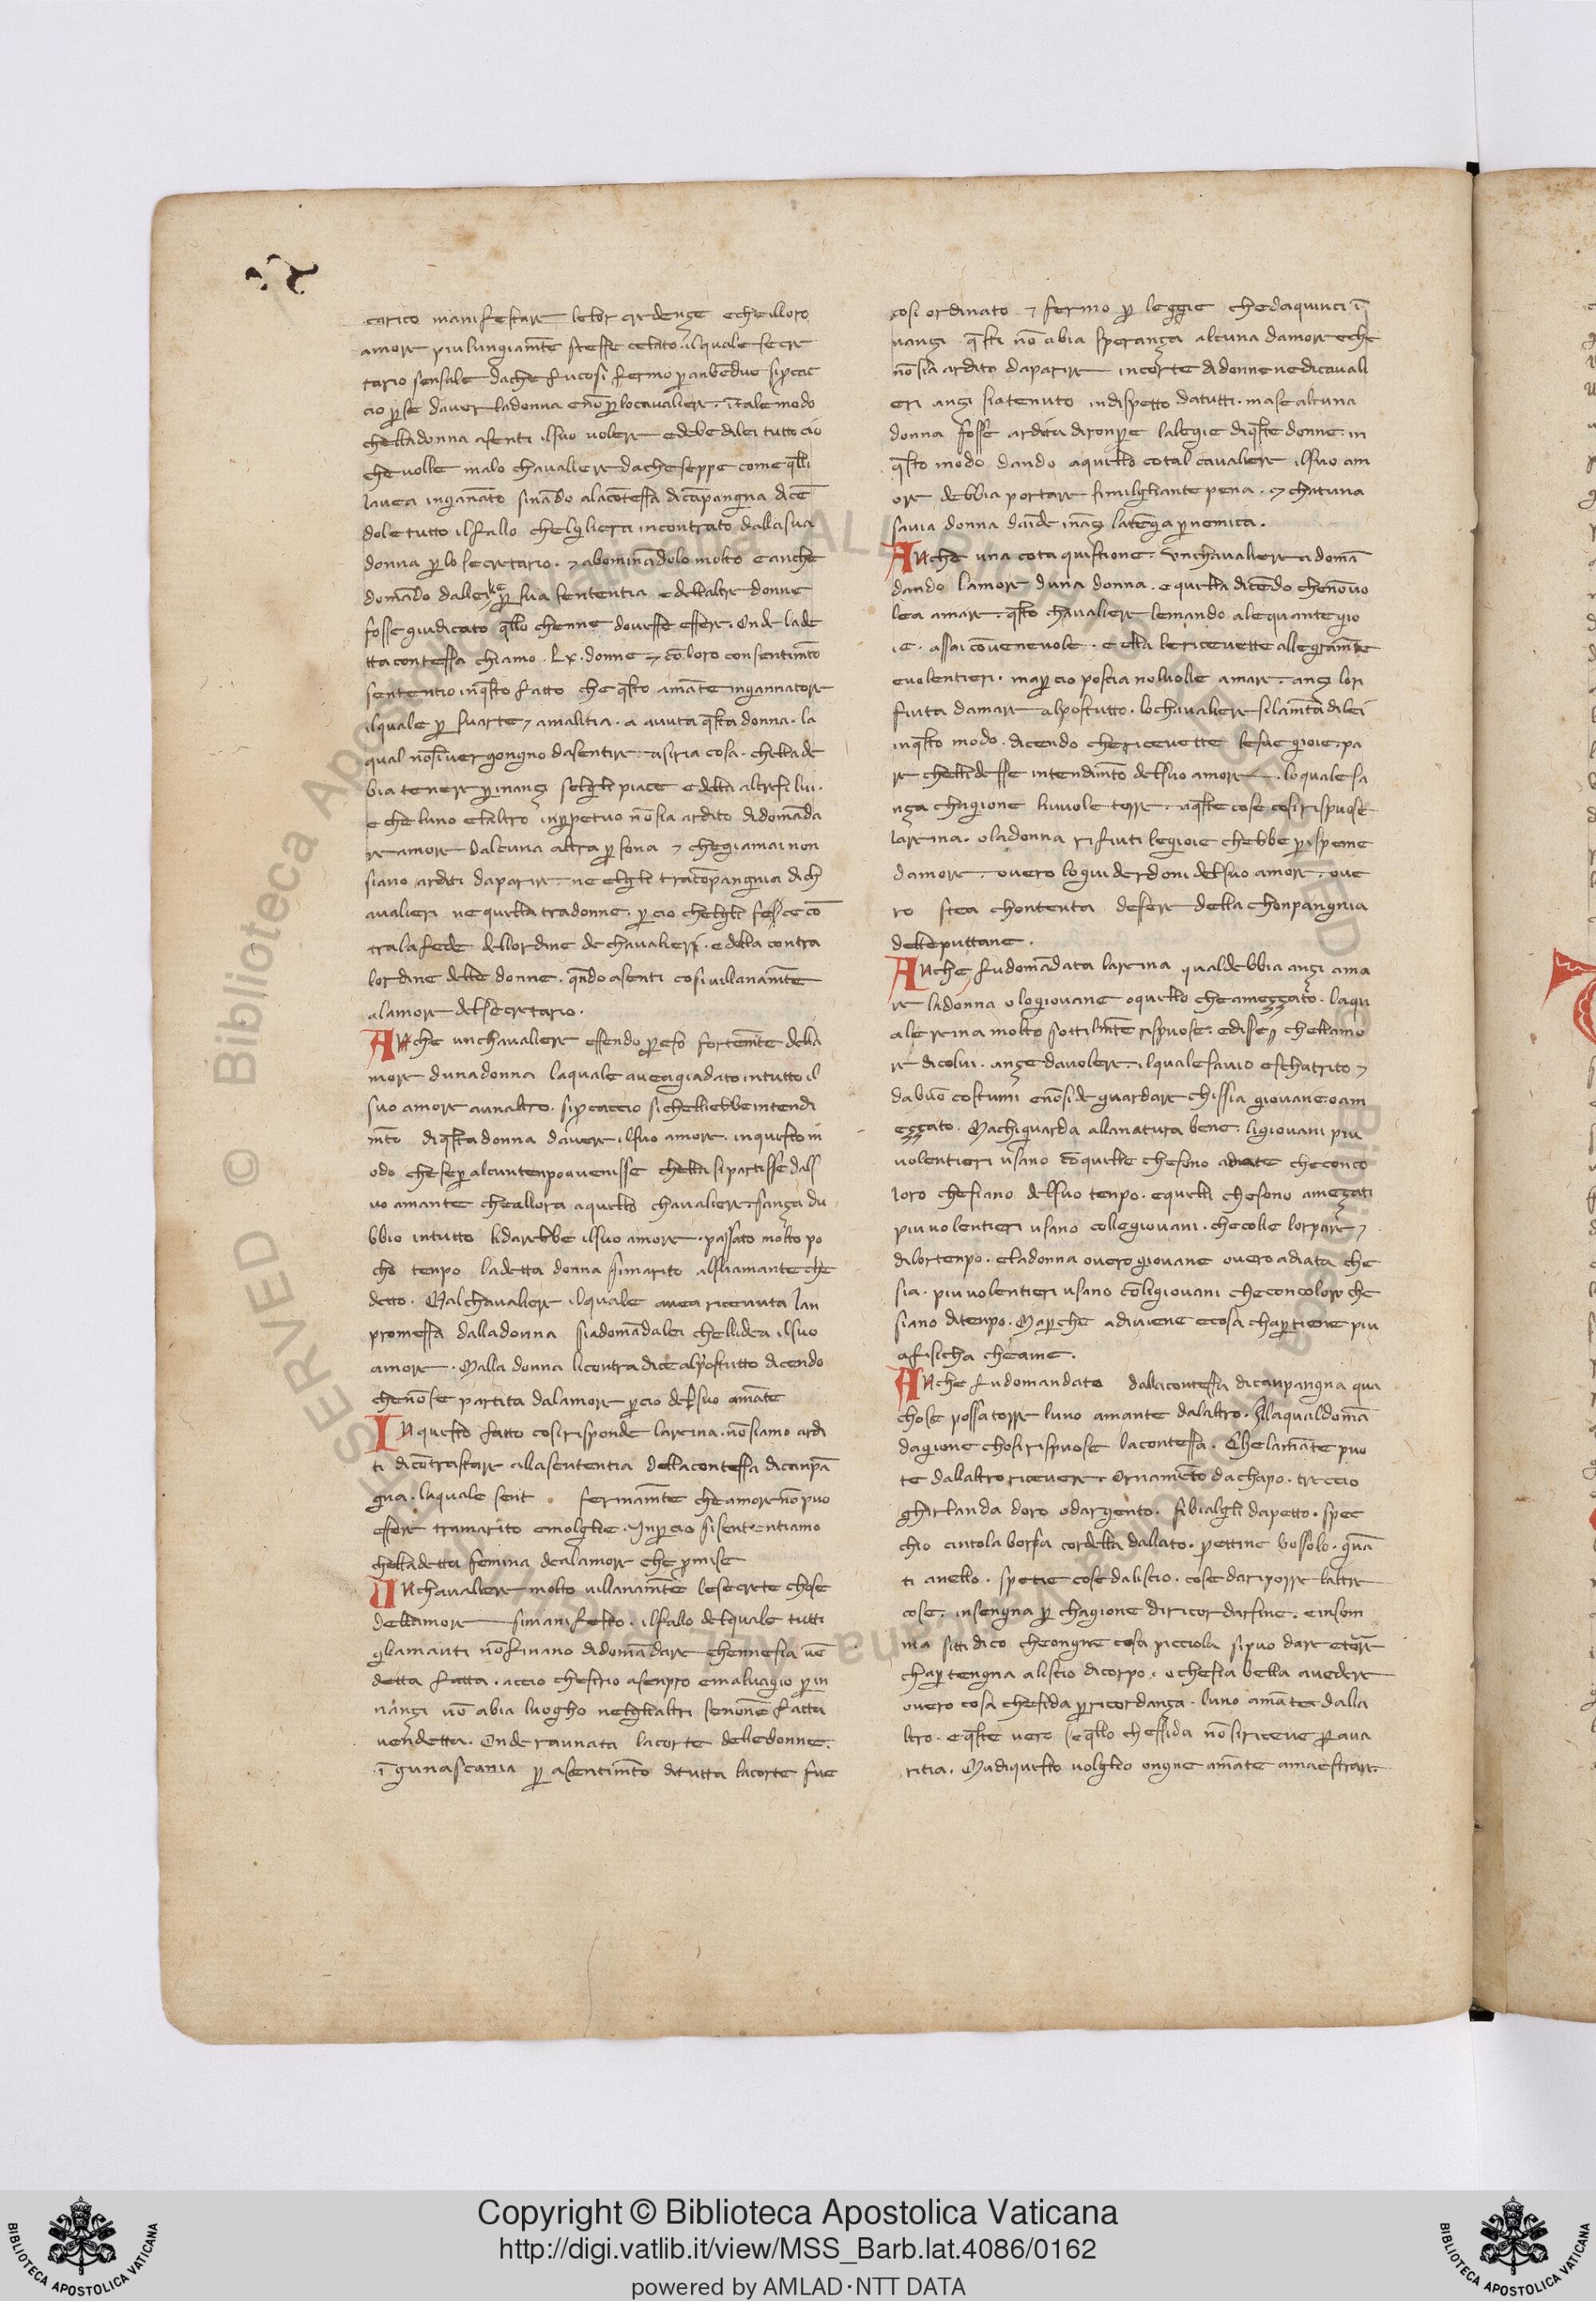 carico manifestare lelor credenze echeilloro
amore piu lungiam̄te stesse celato. ilquale secre
tario sensale dache fucosi fermo p̱ anbedue sip̱cac
cio p̱ se daver ladonna enō p̱ locavaliere. ī tale modo
chelladonna asenti ilsuo volere edebe dilei tutto cio
che volle malo chavaliere dache seppe come q̄lli
lavea inganato sinādo alacōtessa dicāpangna dicē
dole tutto ilfallo chelgliera incontrato dallasua
donna p̱ lo secretario. ⁊ abominādolo molto eanche
domādo dallei ke p̱ sua sententia edellaltre donne
fosse giudicato q̄llo chenne dovesse essere. Onde lade
tta contessa chiamo .Lx. donne ⁊ cō loro consentimēto
sententio inq̄sto fatto che q̄sto amāte ingannatore
ilquale p̱ suarte ⁊ amalitia. a avuta q̄sta donna. la
qual nōsi vergongno dasentire. asiria cosa. chella de
bia tenere p̱ inanzi selgli piace edella altresi lui.
e che luno elaltro inp̱petuo nō sia ardito didomāda
re amore dalcuna altra p̱sona ⁊ chegiamai non
siano arditi daparire. ne elgli tracōpangnia dich
avalieri ne quella tradonne. p̱cio chelgli fesce cō
tralafede dellordine de chavalieri. edella contra
lordine delle donne. qn̄do asenti cosi villanam̄te
alamore delsecretario.
Anche unchavaliere essendo p̱eso fortem̄te della
more dunadonna laquale aveagiadato intutto il
suo amore aunaltro. sip̱caccio sichelliebbe intendi
m̄to diq̄sta donna davere ilsuo amore. in questo m
odo chesep̱ alcuntenpo avenisse chella sipartisse dals
uo amante cheallora aquello chavaliere. sanza du
bbio intutto lidarebbe ilsuo amore. passato molto po
cho tenpo ladetta donna simarito alsuamante che
detto. Malchavaliere ilquale avea ricevuta lan
promessa dalladonna siadomādalei chellidea ilsuo
amore. Malla donna licontradice alpostutto dicendo
chenōse partita dalamore p̱cio delsuo amāte
In questo fatto cosi risponde lareina. nōsiamo ardi
ti dicōtrastare allasententia dellacontessa dicanpā
gna. laquale sent fermam̄te che amore nōpuo
essere tramarito emolglie. Inp̱cio sisententiamo
chelladetta femina dealamore che p̱mise
Unchavaliere molto villanam̄te lesecrete chose
dellamore simanifesto. ilfallo delquale tutti
gliamanti nōfinano didomādare chennesia vē
detta fatta. accio chestrio asenpro emalvagio p̱ in
nanzi nō abia luogho neglialtri senonē fatta
vendetta. Onde raunata lacorte delledonne.
ī gunascania p̱ asentim̄to ditutta lacorte fue
cosi ordinato ⁊ fermo p̱ leggie chedaquinci ī
nanzi q̄sti nō abia speranza alcuna damore eche
nō sia ardito daparire incorte didonne nedicavali
eri anzi siatenuto indispetto datutti. mase alcuna
donna fosse ardita dironp̱e lalegie diq̄ste donne in
q̄sto modo dando aquello cotal cavaliere ilsuo am
ore debbia portare simigliante pena. ⁊ chatuna
savia donna daīde ināzi latēga p̱ nemica.
Anche una cota quistione. Unchavaliere adomā
dando lamore duna donna. equella dicēdo chenōvo
lea amare. q̄sto chavaliere lemando alequante gio
ie. assai cōvenevole. e ella lericevette allegram̄te
evolentieri. map̱cio poscia nolvolle amare. anzi lori
fiuta damare alpostutto. lochavaliere silam̄ta dilei
inq̄sto modo. dicendo chericevette lesue gioie. pa
re chellidesse intendim̄to delsuo amore. loquale sa
nza chagione livuole torre. aq̄ste cose cosi rispuose
lareina. oladonna rifiuti legioie chebbe p̱ ispeme
damore. overo loguiderdoni delsuo amore. ove
ro stea chontenta desere della chonpangnia
delleputtane.
Anche fudomādata lareina qualdebbia anzi ama
re ladonna o logiovane oquello che amezzato. laqu
ale reina molto sottilm̄te rispuose. edisse ⁊ chellamo
re dicolui. anzedavolere. ilquale savio eschatrito ⁊
dabuō costumi enōside guardare chissia giovane. oam
ezzato. Machiguarda allanatura bene. ligiovani piu
volentieri usano cō quelle chesono adiate checonco
loro chesiano delsuo tenpo. equelli chesono amezati
piu volentieri usano collegiovani. checolle lorpare ⁊
dilortenpo. eladonna overo giovane overo adiata che
sia. piu volentieri usano cōligiovani checoncoloro che
siano ditenpo. Map̱che adiviene ecosa chap̱tiene piu
afisicha cheame.
Anche fudomandato dallacontessa dicanpangna qua
chose possa torre luno amante dalaltro. Allaqualdomā
dagione chosirispuose lacontessa. Che lam̄ate puo
te dallaltro ricevere. Ornamēto dachapo. treccio
ghirlanda doro odargento. fibialgli dapetto. spec
chio cintola borsa cordella dallato. pettine bossolo. guā
ti anello. spetie cose daliscio. cose dariporre laltre
cose. insengna p̱ chagione diricordarsine. einsom
ma sitti dico cheongne cosa picciola sipuo dare etorre
chap̱tengna aliscio dicorpo. ochesia bella avedere
overo cosa chesida p̱ ricordanza. luno amātea dalla
ltro. eq̄ste vero seq̄llo chessida nōsiriceve p̱ ava
ritia. Madiquesto volglio ongne amāte amaestrare.
Copyright © Biblioteca Apostolica Vaticana
http://digi.vatlib.it/view/MSS_Barb.lat.4086/0162
powered by AMLAD·NTT DATA
BIBLIOTECA APOSTOLICA VATICANA
BIBLIOTECA APOSTOLICA VATICANA